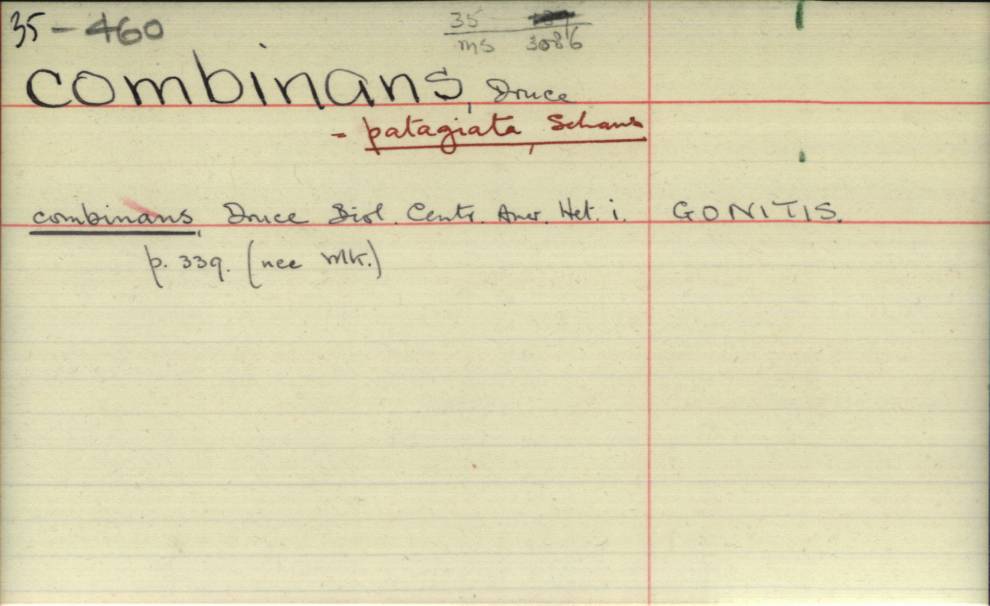 35-460
35
ms 3086
combinans, Druce
- patagiata, Schaus
combinans, Druce Biol. Centr. Amer. Het. i. GONITIS.
p. 339. (nec Wlk.)